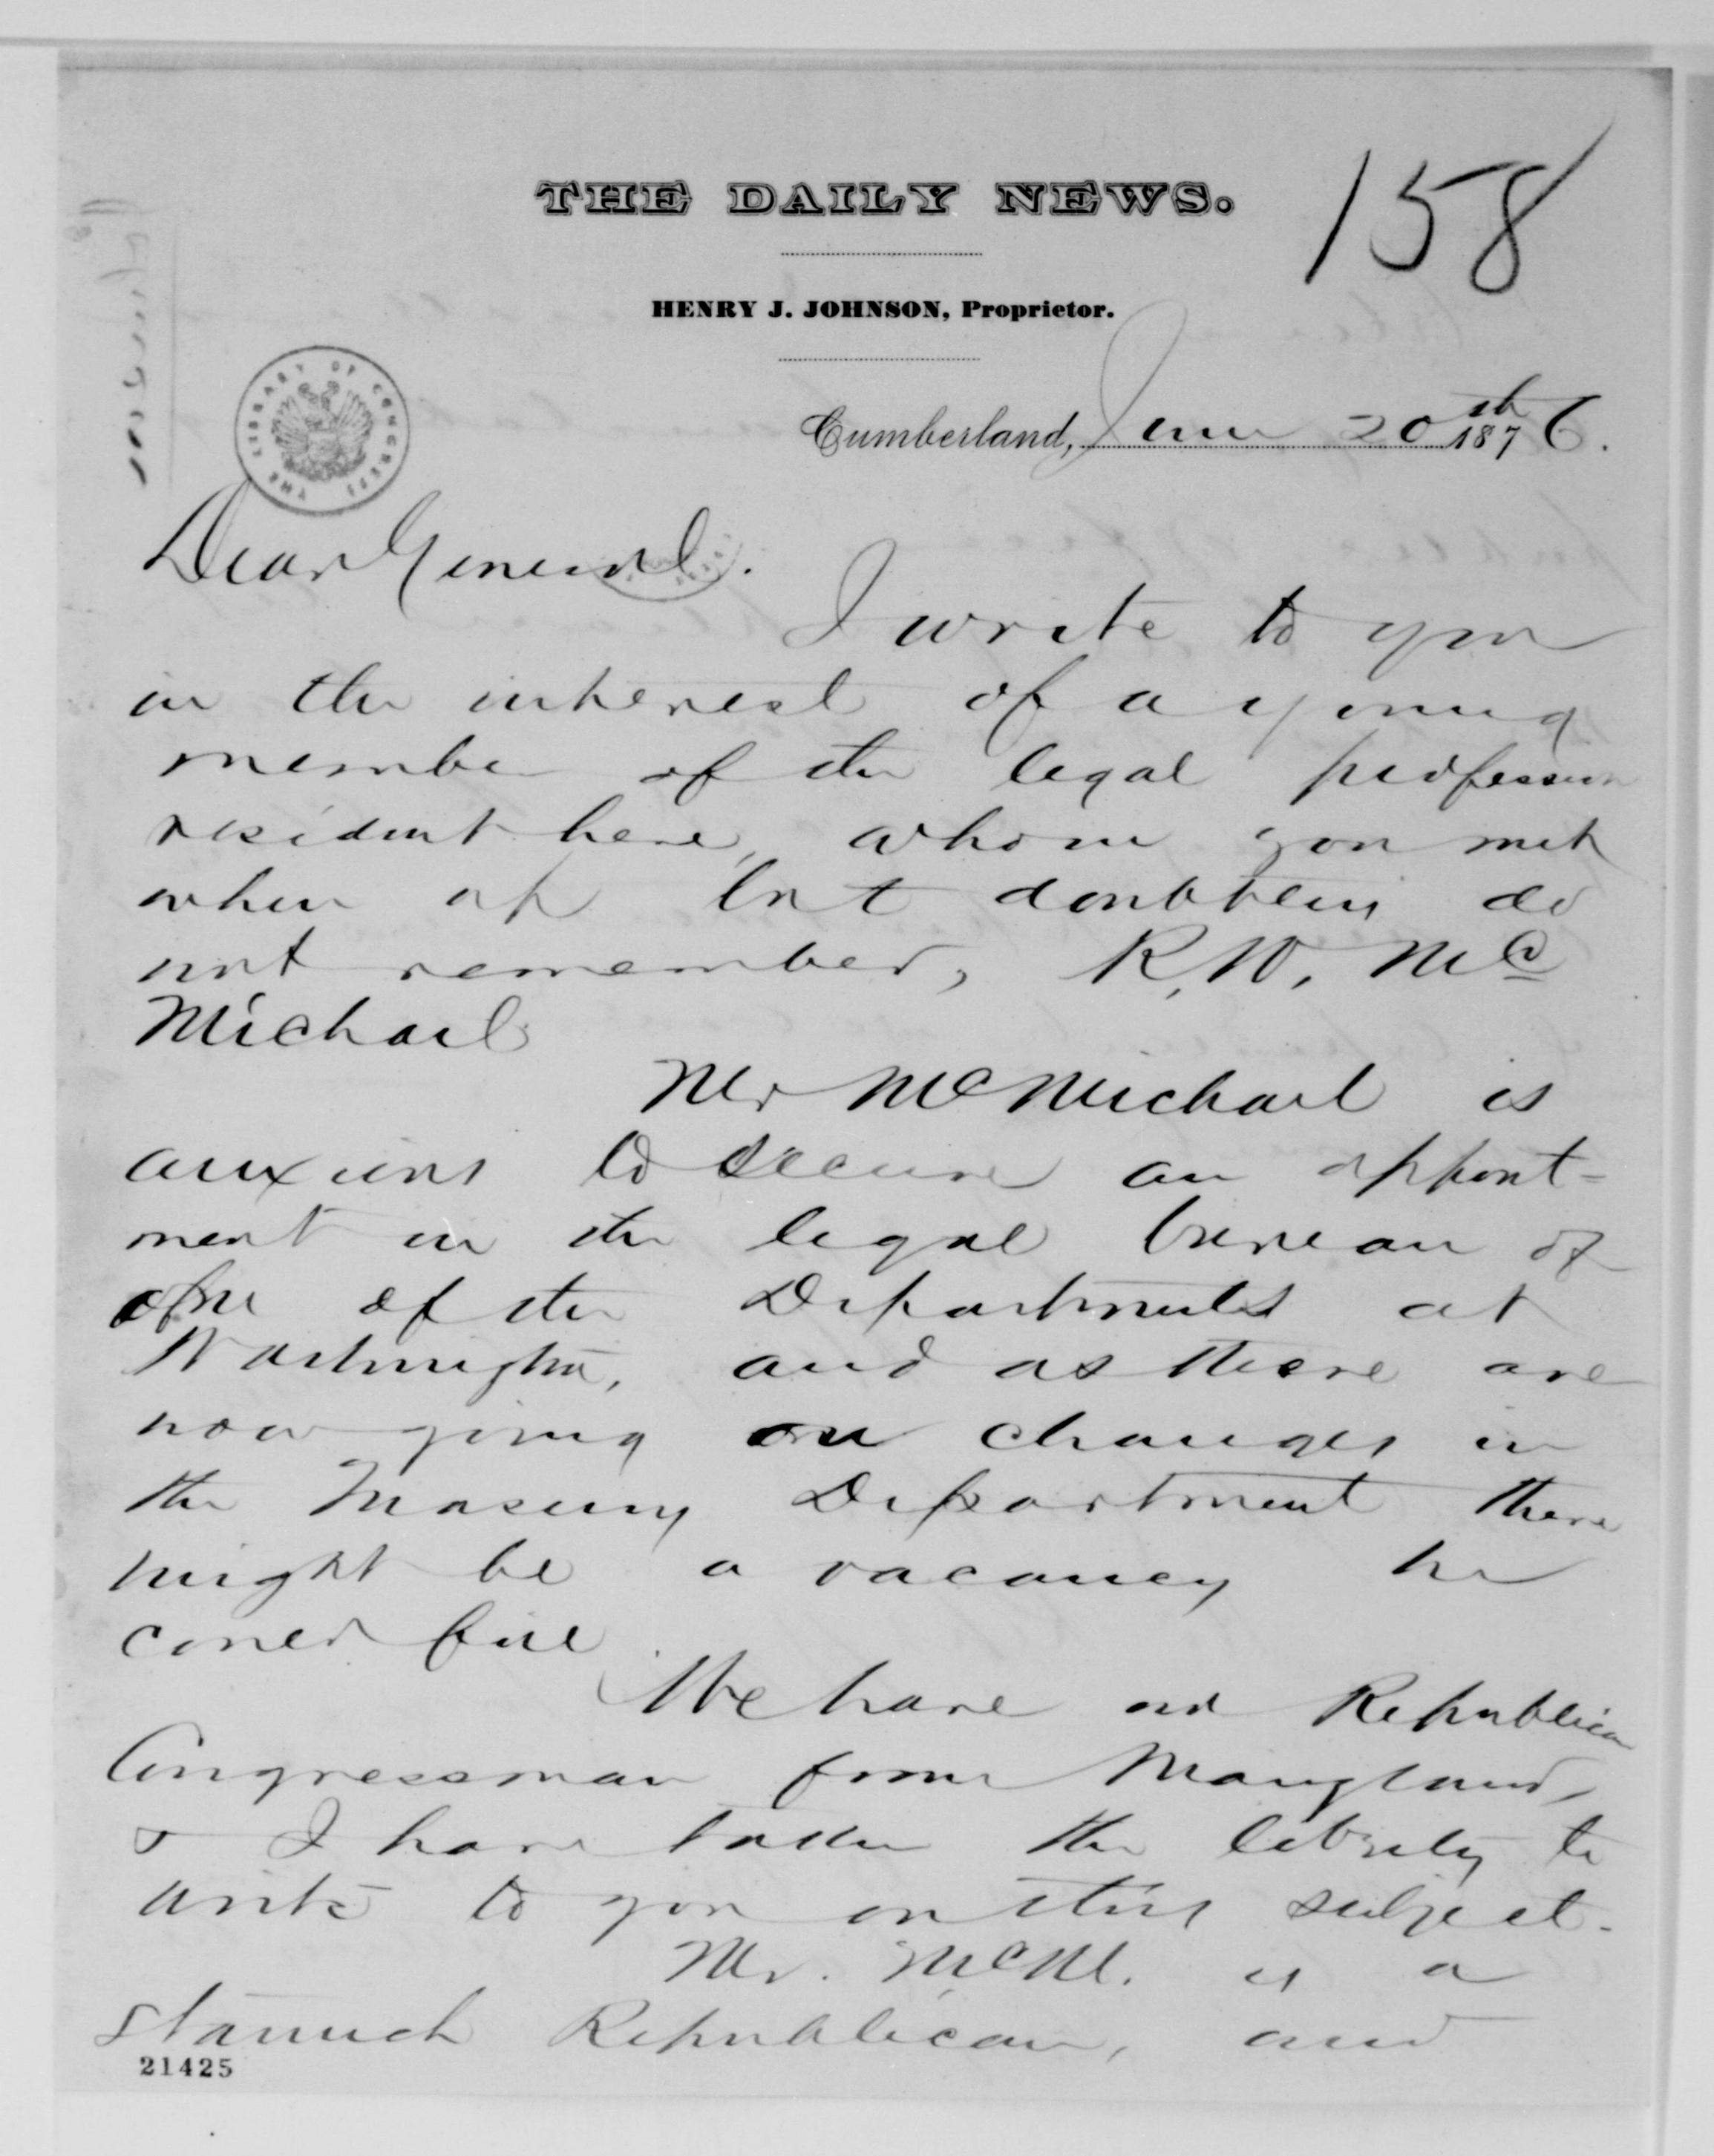 158
THE DAILY NEWS.
HENRY J. JOHNSON, Proprietor.
THE LIBRARY OF CONGRESS
Cumberland, June 20th 1876.
Dear General.
I write to you
in the interest of a young
member of the legal profession
resident here, whom you met
when up but doubtless do
not remember, R. W. Mc
Michael
Mr McMichael is
anxious to secure an appoint-
ment in the legal bureau of
one of the Departments at
Washington, and as there are
now going on changes in
the Treasury Department there
might be a vacancy he
could fill
We have no Republican
Congressman from Maryland,
& I have taken the liberty to
write to you on this subject.
Mr. McM. is a
staunch Republican, and
21425